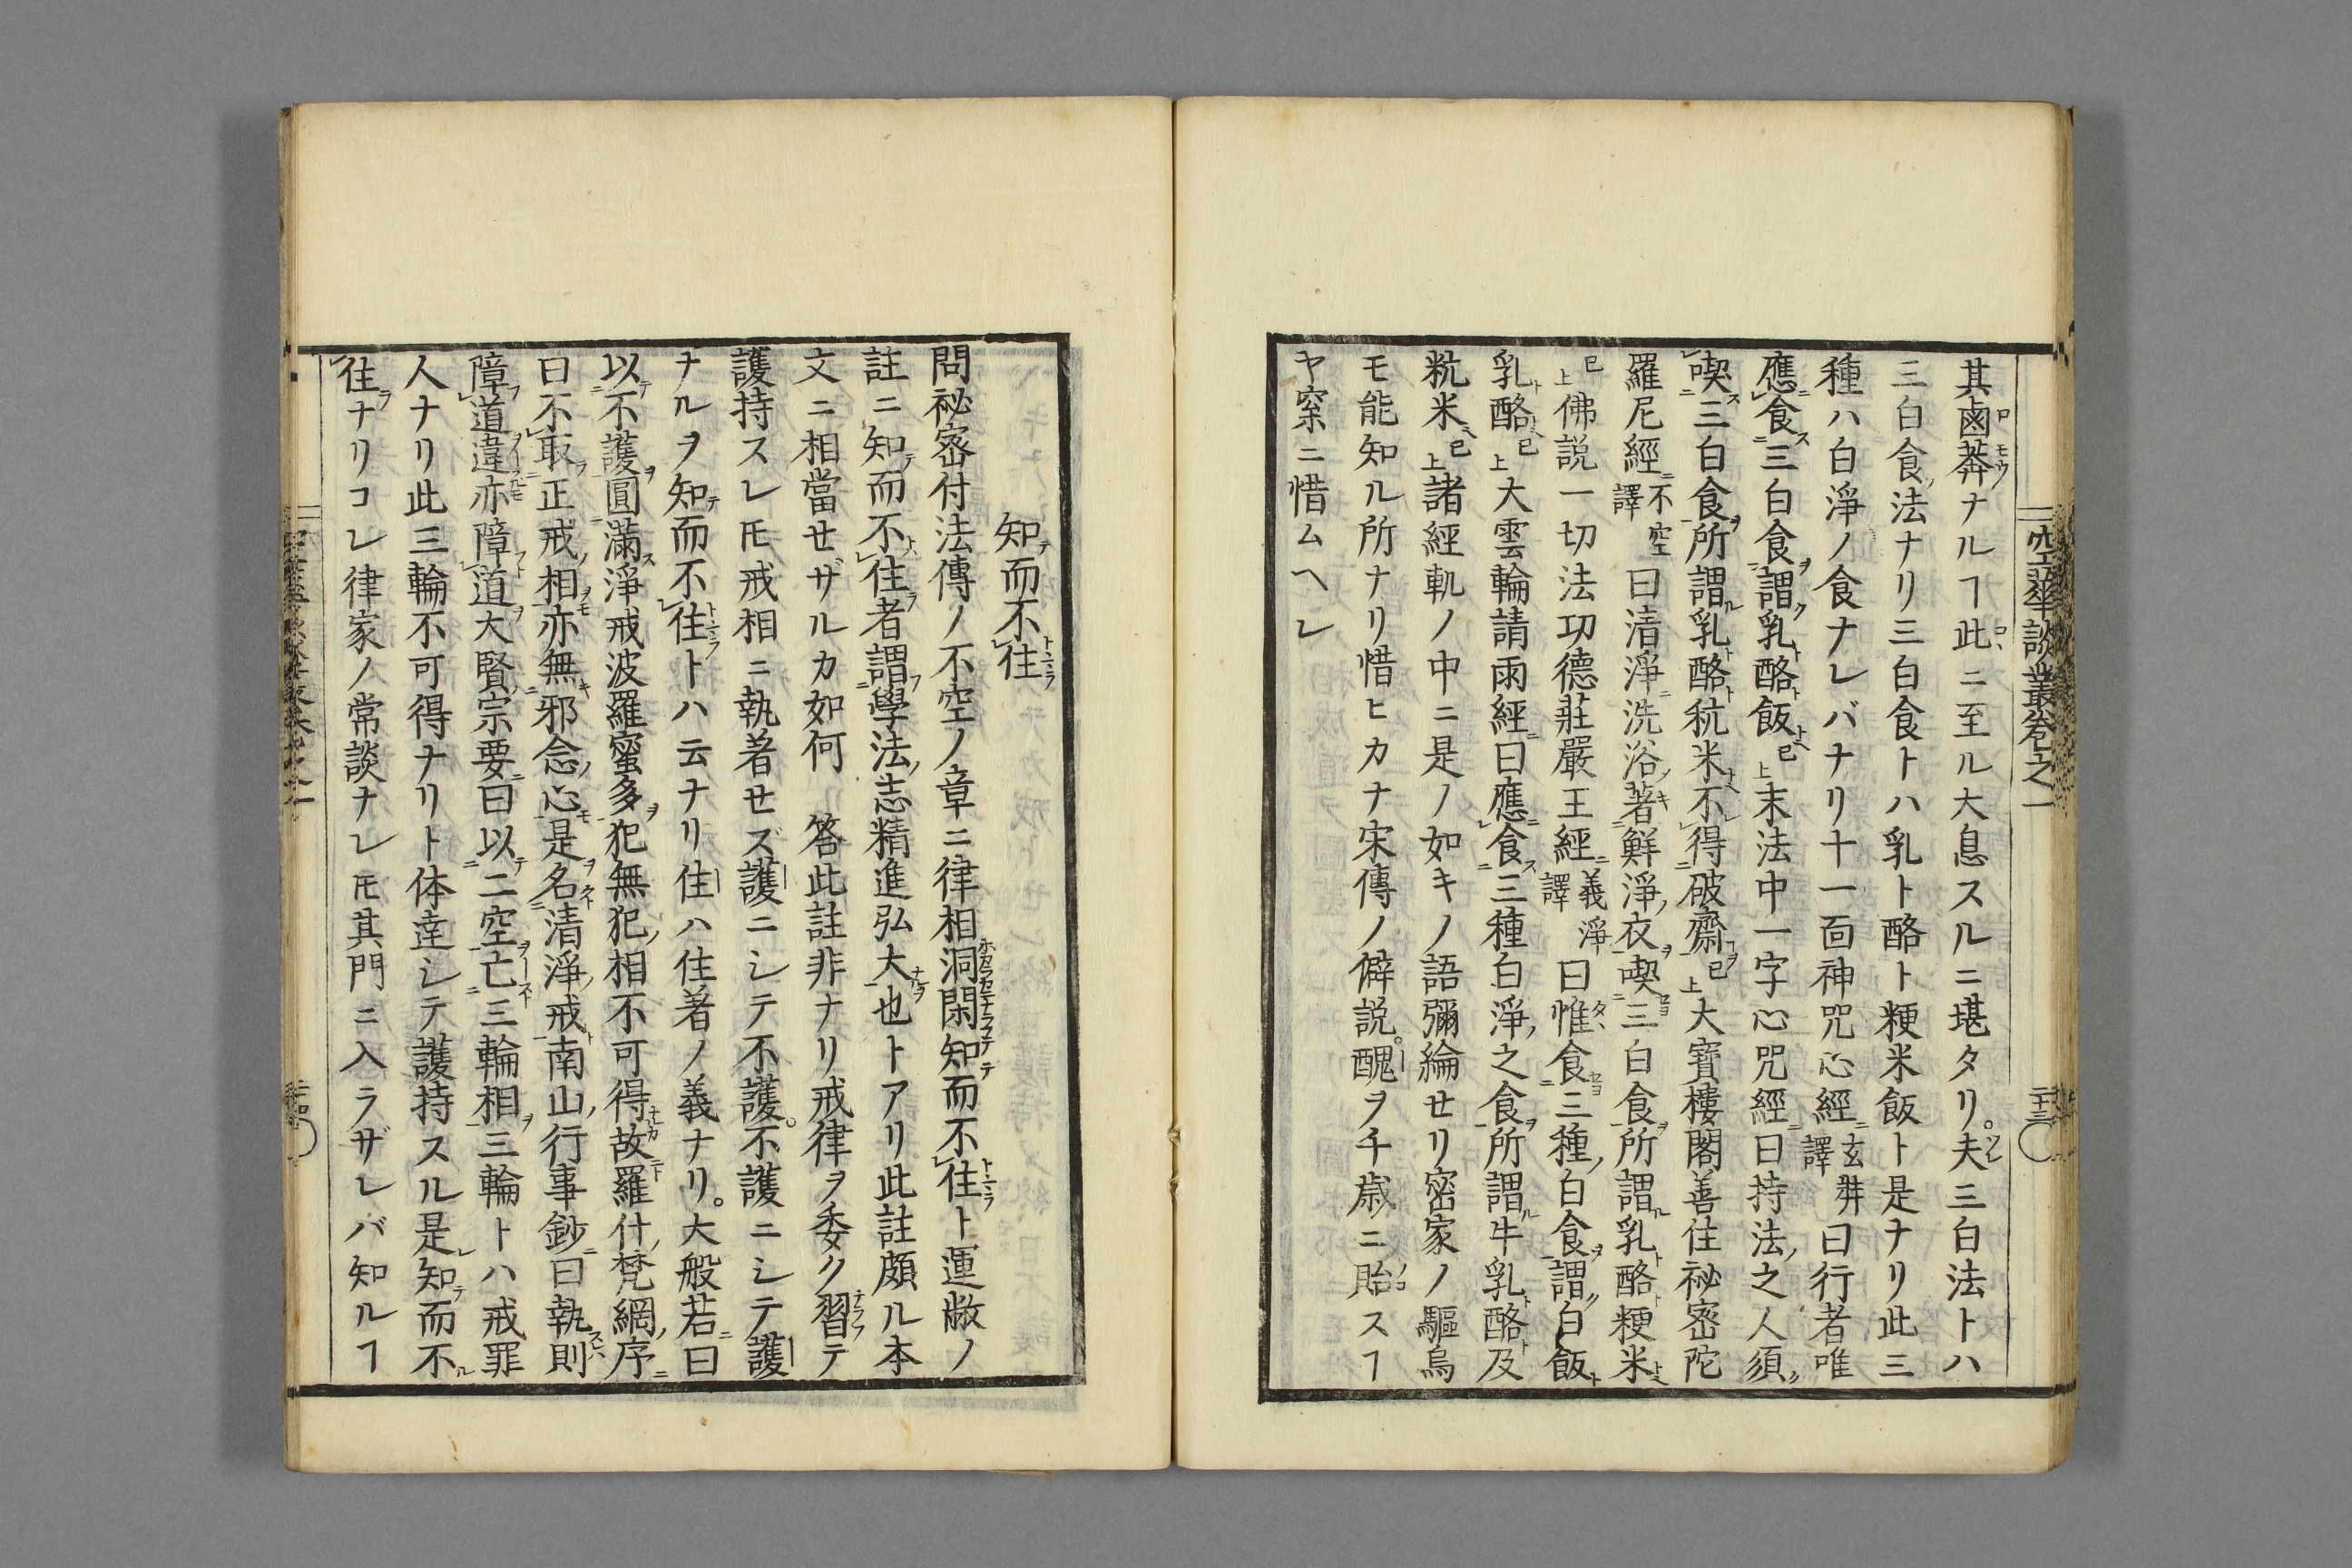 空華談叢卷之一
其鹵莾ナルヿ此ニ至ル大息スルニ堪タリ。夫三白法トハ
三白食ノ法ナリ三白食トハ乳ト酪ト粳米飯ト是ナリ此三
種ハ白淨ノ食ナレバナリ十一面神咒心經ニ玄奘譯曰行者唯
應食三白食謂乳酪飯已上末法中一字心咒經ニ曰持法之人須
喫三白食所謂乳酪秔米不得破齋已上大寶樓閣善住祕密陀
羅尼經ニ不空譯曰清淨洗浴著鮮淨衣喫三白食所謂乳酪粳米
已上佛説一切法功德莊嚴王經ニ義淨譯曰惟食三種白食謂白飯
乳酪已上大雲輪請雨經ニ曰應食三種白淨之食所謂牛乳酪及
粇米已上諸經軌ノ中ニ是ノ如キノ語彌綸セリ密家ノ驅烏
モ能知ル所ナリ惜ヒカナ宋傳ノ僻説。醜ヲ千歳ニ貽スヿ
ヤ寀ニ惜ムヘレ
二十三
知而不住
問祕密付法傳ノ不空ノ章ニ律相洞閑知而不住ト運敞ノ
註ニ知而不住者謂學法志精進弘大也トアリ此註頗ル本
文ニ相當せザルカ如何 答此註非ナリ戒律ヲ委ク習テ
護持スレ𪜈戒相ニ執著せズ護ニシテ不護。不護ニシテ護
ナルヲ知而不住トハ云ナリ住ハ住著ノ義ナリ。大般若ニ曰
以不護圓滿淨戒波羅蜜多犯無犯相不可得故羅什梵網序ニ
曰不取正戒相亦無邪念心是名清淨戒南山行事鈔ニ曰執則
障道違亦障道大賢宗要ニ曰以二空亡三輪相三輪トハ戒罪
人ナリ此三輪不可得ナリト体達シテ護持スル是レ知而不
住ナリコレ律家ノ常談ナレ𪜈其門ニ入ラザレバ知ルヿ